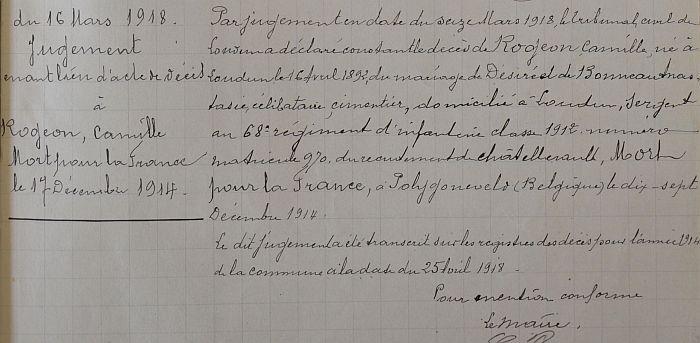 du 16 Mars 1918.
Jugement
tenant lieu d'acte de décès
à
Rogeon, Camille
Mort pour la France
le 17 Décembre 1914.
Par jugement en date du seize Mars 1918, le tribunal civil de
Loudun a déclaré constant le décès de Rogeon Camille, né à
Loudun le 16 Avril 1892, du mariage de Désiré et de Bonneau Anas-
tasie, célibataire, cimentier, domicilié à Loudun, Sergent
au 68e régiment d'infanterie classe 1912 numéro
matricule 970, du recrutement de Châtellerault, Mort
pour la France, à Polygoneveld (Belgique) le dix-sept
Décembre 1914.
Le dit jugement a été transcrit sur les registres des décès pour l'année 1914
de la commune à la date du 25 Avril 1918.
Pour mention conforme
le Maire,